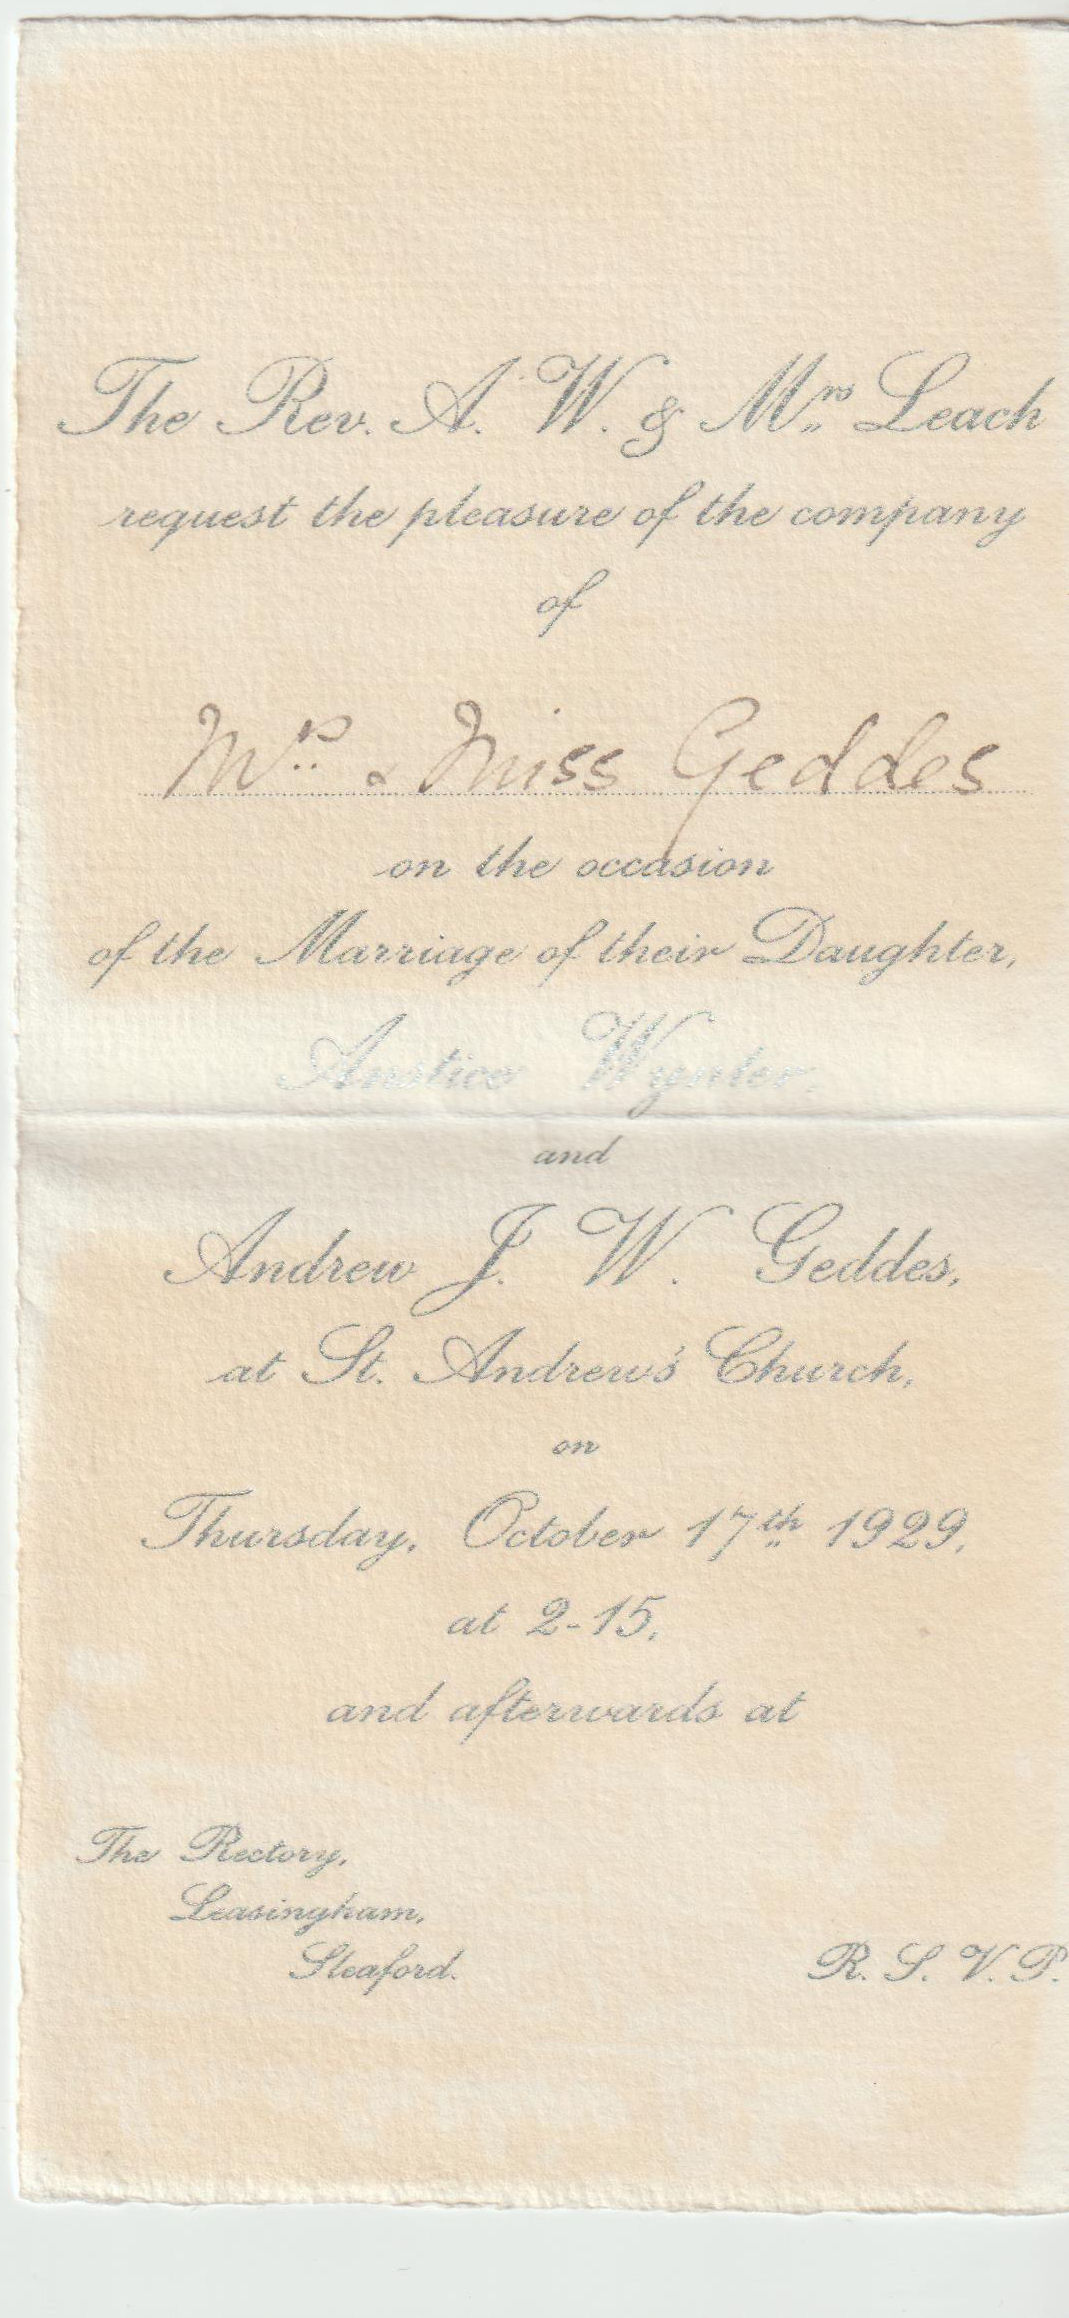 The Rev. A. W. & Mrs Leach
request the pleasure of the company
of
Mrs & Miss Geddes
on the occasion
of the Marriage of their Daughter,
Anstice Wynter,
and
Andrew J. W. Geddes,
at St. Andrew's Church,
on
Thursday, October 17th 1929,
at 2-15,
and afterwards at
The Rectory,
Leasingham,
Sleaford.
R. S. V. P.